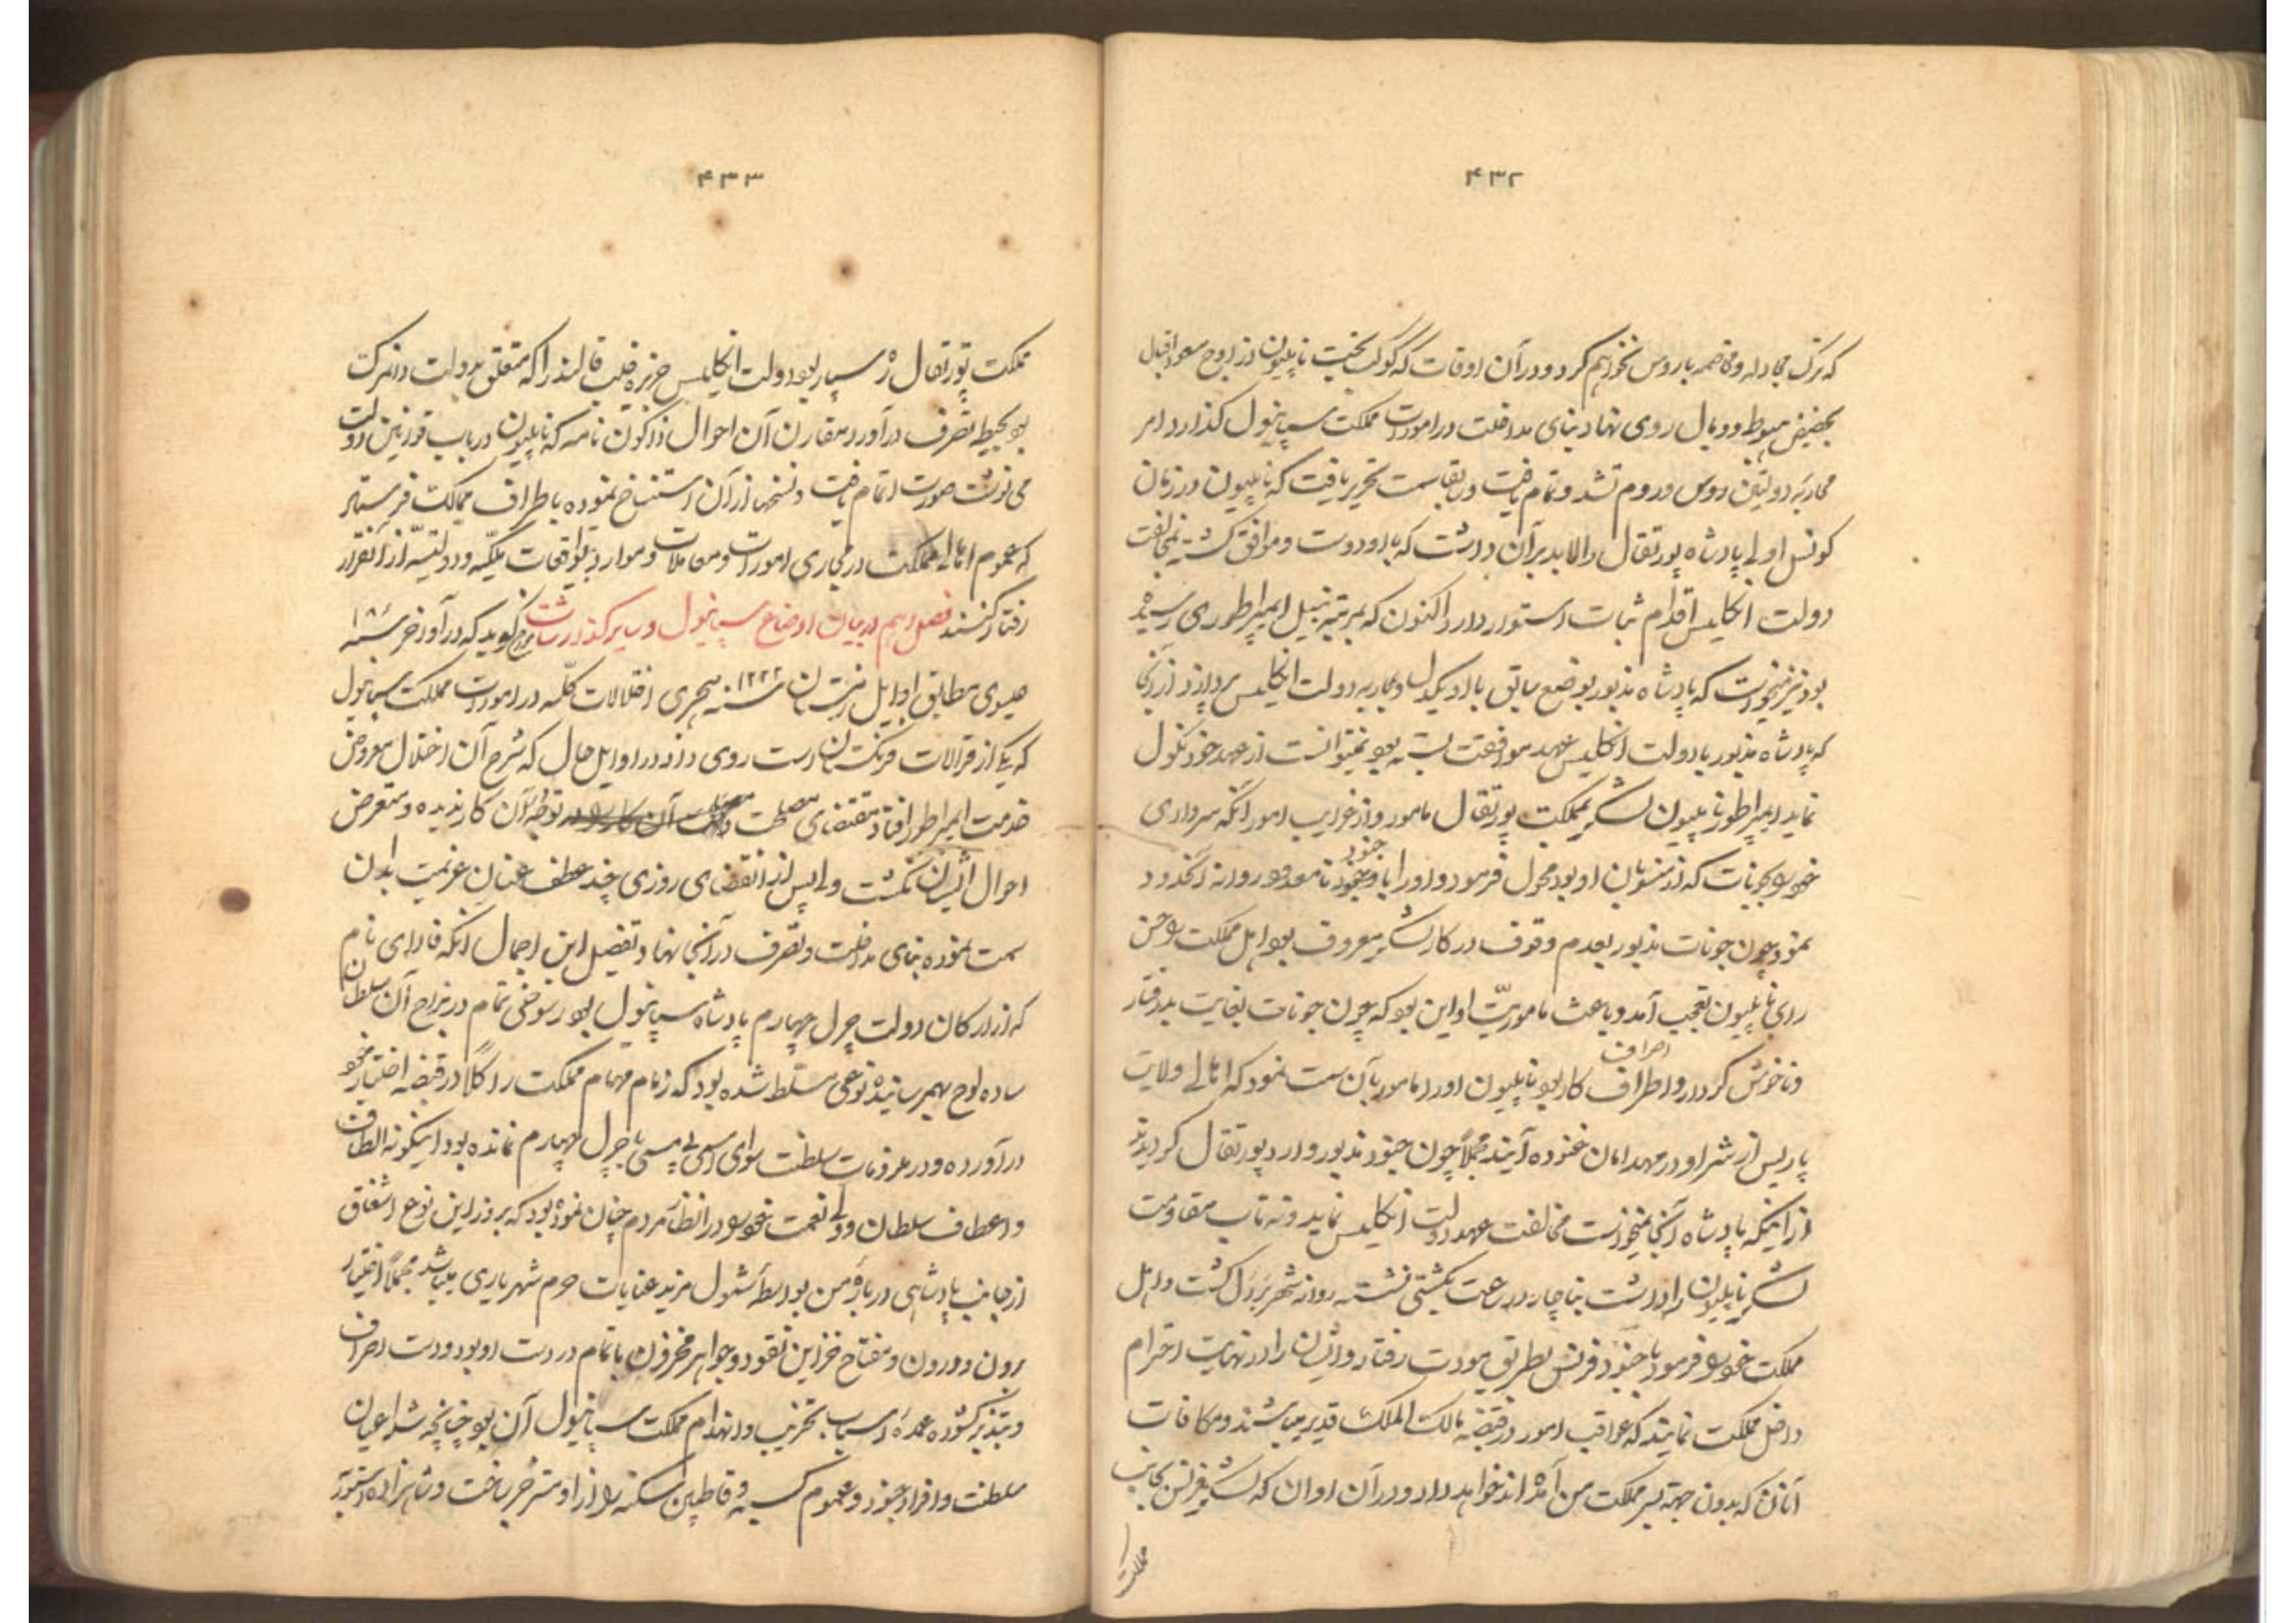 ۴۳۲
که ترک مجادله و مخاصمه با روس نخواهم کرد و در آن اوقات که کوکب بخت ناپلیون از اوج صعود اقبال
بحضیض هبوط و وبال روی نهاد بنای مداخلت در امورات مملکت سپانیول گذارد امر
محاربه دولتین روس و روم نشد و تمام یافت و سمت تحریر یافت که ناپلیون در زمان
کونسل اولی پادشاه پورتقال را لابد بر آن داشت که با او دوست و موافق گشته بمخالفت
دولت انکلیس اقدام ثبات استوار دارد اکنون که بمرتبه نبیل ایمپراطوری رسیده
بود نیز میخواست که پادشاه مذبور بوضع سابق با او یکدل و بمحاربه دولت انکلیس پردازد از آنجا
که پادشاه مذبور با دولت انکلیس عهد موافقت بسته بود نمیتوانست از عهد خود نکول
نماید ایمپراطور ناپلیون لشکر بمملکت پورتقال مامور و از غرایب امور آنکه سرداری
خود بجونات که از منسوبان او بود محول فرمود و او را با جنود نامعدود روانه آنحدود
نمود چون جونات مذبور بعدم وقوف در کار لشکر معروف بود اهل مملکت را حسن
رای ناپلیون تعجب آمد و باعث ماموریت او این بود که چون جونات بغایت بدرفتار
اصراف
و ناخوش کردار و اطراف کار بود ناپلیون او را مامور بآن سمت نمود که اهالی ولایت
پاریس از شر او در مهد امان غنوده آیند مجملاً چون جنود مذبور وارد پورتقال گردیدند
از اینکه پادشاه آنجا نمیخواست مخالفت عهد دولت انکلیس نماید و نه تاب مقاومت
لشکر ناپلیون را داشت بناچار در ساعت بکشتی نشسته روانه شهر برزل گشت و اهل
مملکت خود را فرمود با جنود فرنس بطریق مودت رفتار و ایشان را در نهایت احترام
داخل مملکت نمایند که عواقب امور در قبضه مالک الملک قدیر میباشند و مکافات
آنان که بدون جهته بسر مملکت من آمده اند خواهد داد و در آن اوان که لشکر فرنس بجانب
مملکت
۴۳۳
مملکت پورتقال ره سپار بود دولت انکلیس جزیره هلیقالند را که متعلق بدولت دانمرک
بود بحیطه تصرف در آورد مقارن آن احوال ذاکون نامه که ناپلیون در باب قوانین دولت
می نوشت صورت اتمام یافت و نسخها از آن استنساخ نموده باطراف ممالک فرستاد
که عموم اهالی مملکت در مجاری امورات و معاملات و موارد تواقعات ملکیه و دولتیه از آنقرار
رفتار کنند فصل دهم در بیان اوضاع سپانیول و سایر گذارشات مورخ گوید که در آواخر سنه ۱۸
عیسوی مطابق اوایل زمستان سنه ۱۲۲۲ هجری اختلالات کلیه در امورات مملکت سپانیول
که یکی از قرالات فرنگستان است روی داد در اوایل حال که شرح آن اختلال معروض
خدمت ایمپراطور افتاد بمقتضای مصلحت توطه آن کار ندیده و متعرض
احوال ایشان نگشت ولی پس از انقضای روزی چند عطف عنان عزیمت بدان
سمت نموده بنای مداخلت و تصرف در آنجا نهاد تفصیل این اجمال آنکه قادای نام
که از ارکان دولت چرل چهارم پادشاه سپانیول بود رسوخی تمام در مزاج آن سلطان
ساده لوح بهم رسانیده نوعی مسلط شده بود که زمام مهام مملکت را کلاً در قبضه اختیار خود
در آورده و در ملزومات سلطنت سوای اسمی بی مسمی با چرل چهارم نمانده بود اینگونه الطاف
و اعطاف سلطان ولی نعمت خود را در انظار مردم چنان نموده بود که بروز این نوع اشفاق
از جانب پادشاهی درباره من بواسطه شمول مزید عنایات حرم شهریاری میباشد مجملاً اختیار
برون و درون و مفتاح خزاین نقود و جواهر مخزون باتمام در دست او بود و دست اصراف
و تبذیر گشوده عمده اسباب تخریب و انهدام مملکت سپانیول آن بود چنانچه شرا اعیان
سلطنت و افراد جنود و عموم کسبه و قاطبین سکنه را از او متنفر ساخت و شاهزاده استوریه